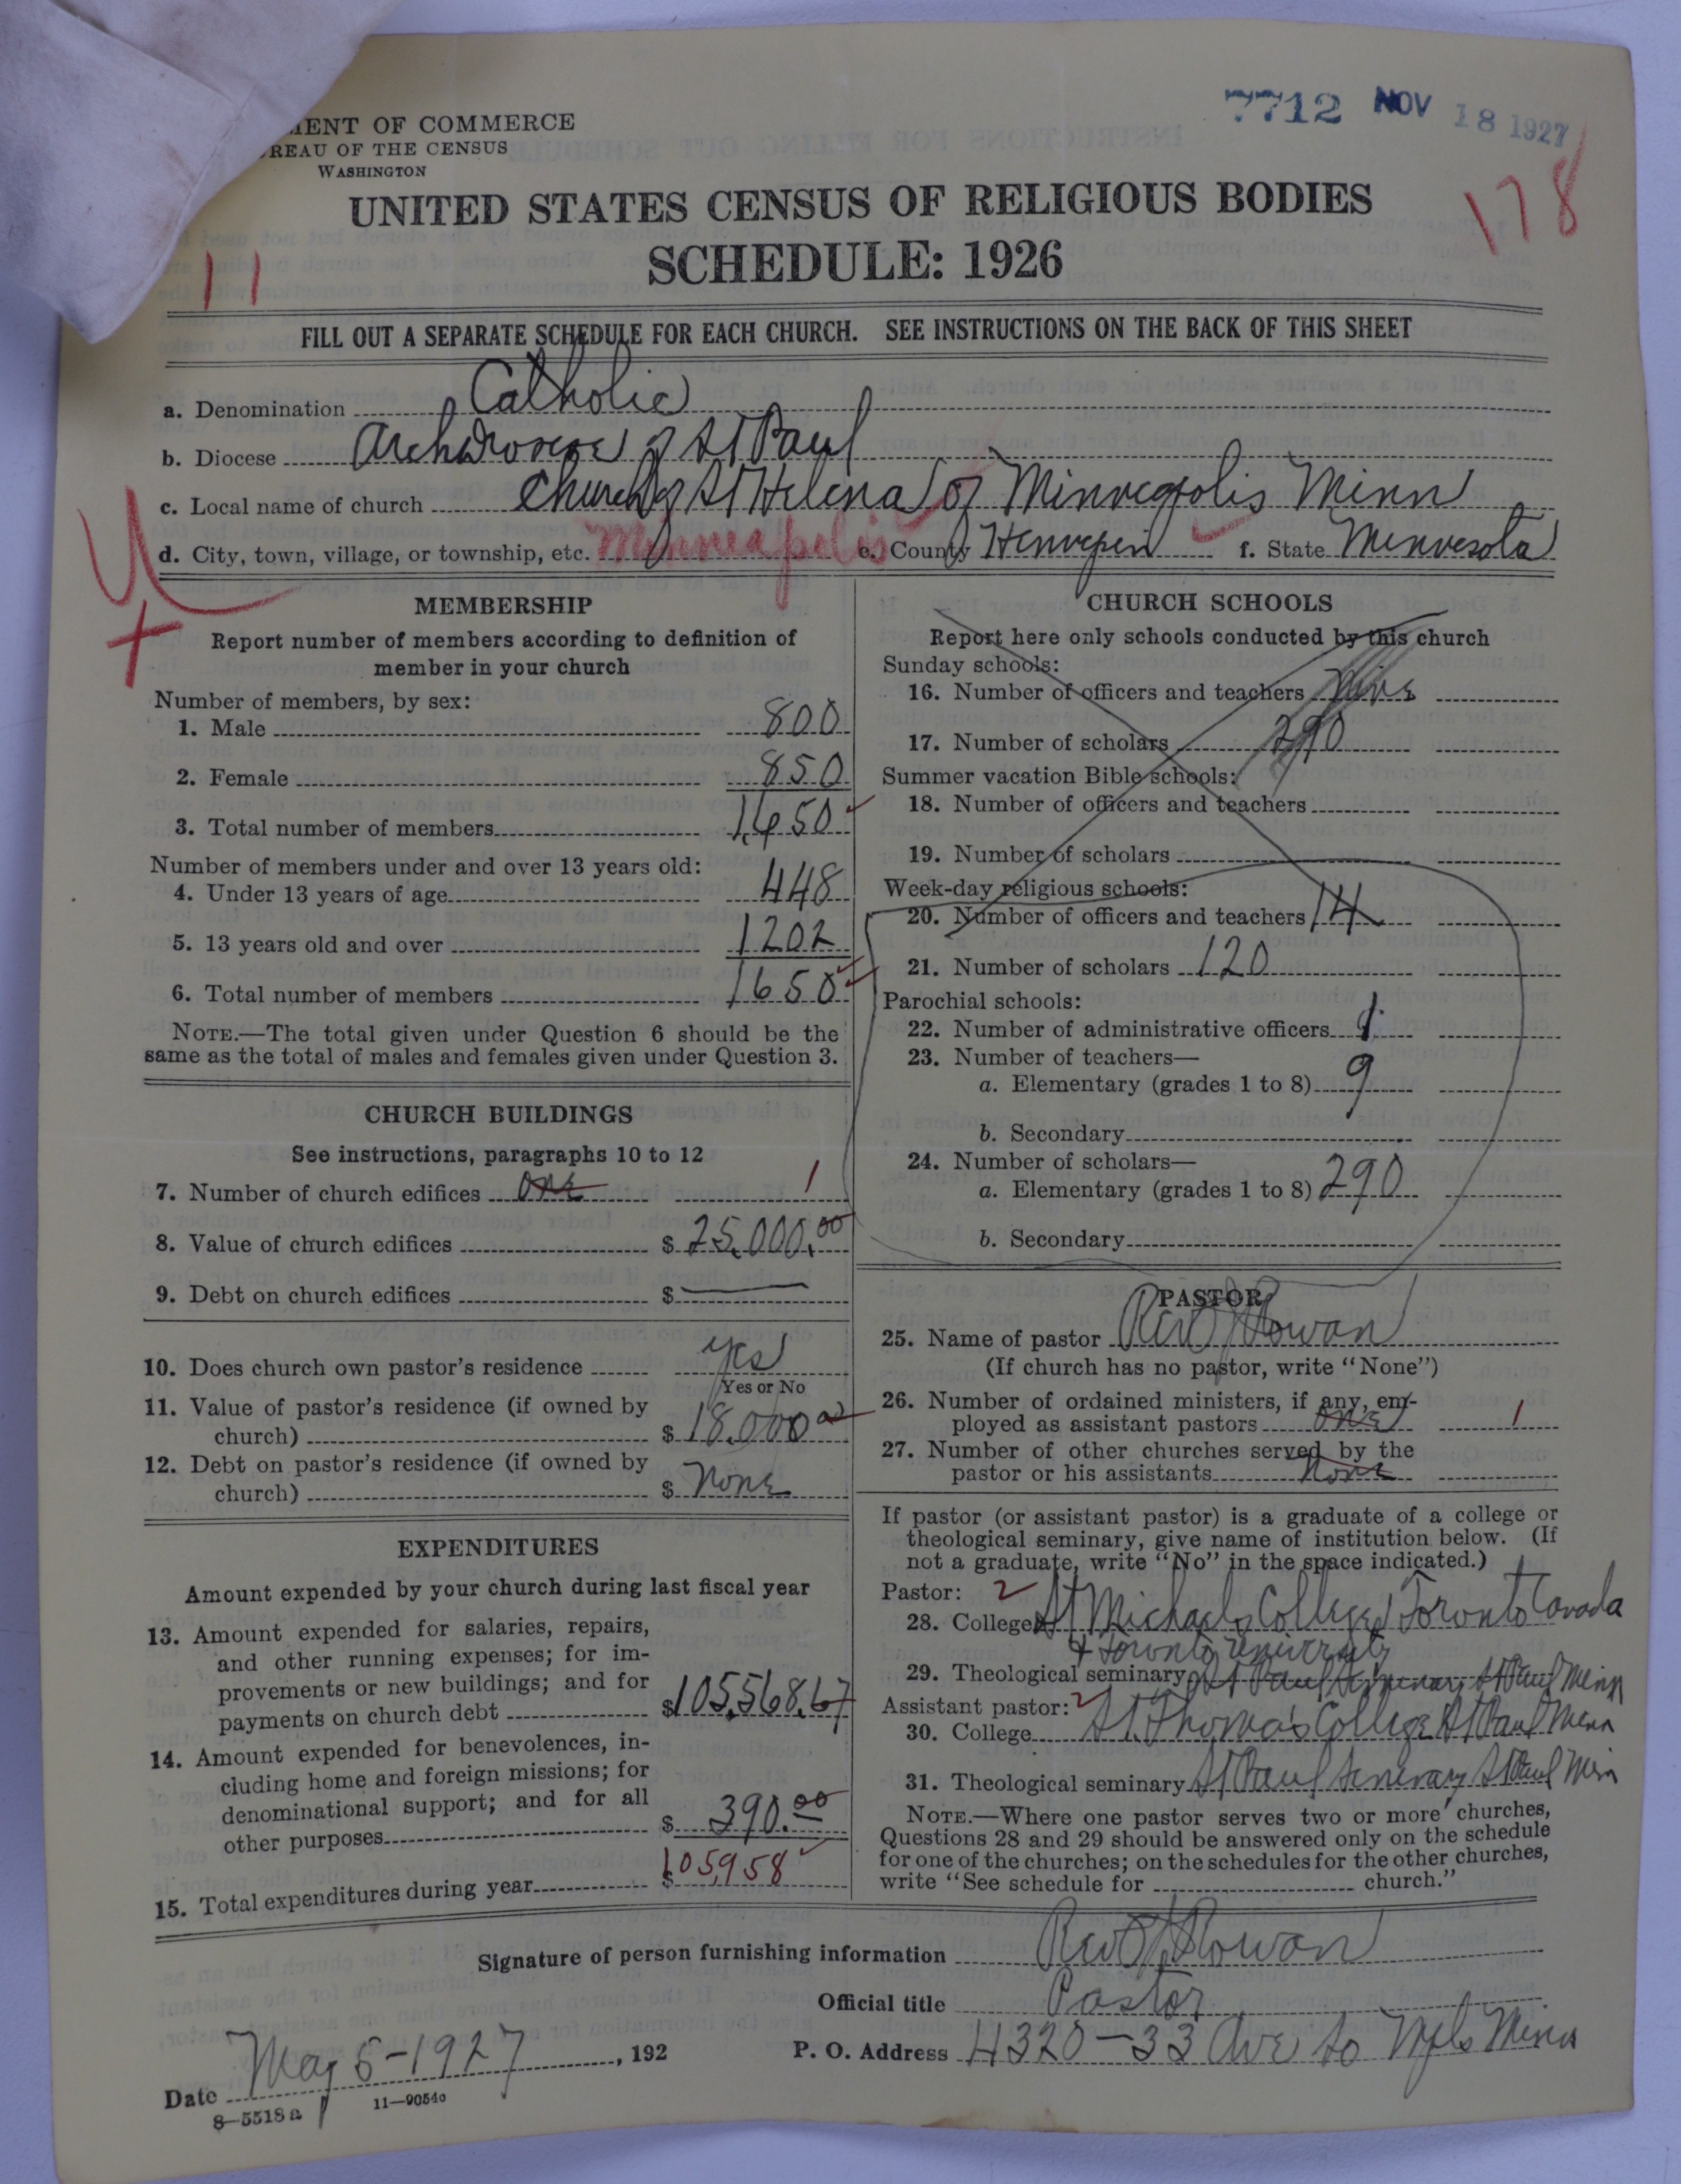 7712 NOV 18 1927
MENT OF COMMERCE
REAU OF THE CENSUS
WASHINGTON
178
UNITED STATES CENSUS OF RELIGIOUS BODIES
SCHEDULE: 1926
11
FILL OUT A SEPARATE SCHEDULE FOR EACH CHURCH. SEE INSTRUCTIONS ON THE BACK OF THIS SHEET
a. Denomination Catholic
b. Diocese Archdiocese of St Paul
c. Local name of church Church of St Helena of Minneapolis Minn
d. City, town, village, or township, etc. Minneapolis e. County Hennepin f. State Minnesota
MEMBERSHIP
Report number of members according to definition of
member in your church
Number of members, by sex:
1. Male 800
2. Female 850
3. Total number of members 1,650
Number of members under and over 13 years old:
4. Under 13 years of age 448
5. 13 years old and over 1202
6. Total number of members 1650
NOTE.—The total given under Question 6 should be the
same as the total of males and females given under Question 3.
CHURCH BUILDINGS
See instructions, paragraphs 10 to 12
7. Number of church edifices one 1
8. Value of church edifices $ 25,000.00
9. Debt on church edifices $ —
10. Does church own pastor's residence yes
Yes or No
11. Value of pastor's residence (if owned by
church) $ 18,000 00
12. Debt on pastor's residence (if owned by
church) $ None
EXPENDITURES
Amount expended by your church during last fiscal year
13. Amount expended for salaries, repairs,
and other running expenses; for im-
provements or new buildings; and for
payments on church debt $105,568.67
14. Amount expended for benevolences, in-
cluding home and foreign missions; for
denominational support; and for all
other purposes $ 390.00
15. Total expenditures during year $ 105,958
CHURCH SCHOOLS
Report here only schools conducted by this church
Sunday schools:
16. Number of officers and teachers Nine
17. Number of scholars 290
Summer vacation Bible schools:
18. Number of officers and teachers
19. Number of scholars
Week-day religious schools:
20. Number of officers and teachers 14
21. Number of scholars 120
Parochial schools:
22. Number of administrative officers 1
23. Number of teachers—
a. Elementary (grades 1 to 8) 9
b. Secondary
24. Number of scholars—
a. Elementary (grades 1 to 8) 290
b. Secondary
PASTOR
25. Name of pastor Rev J Rowan
(If church has no pastor, write "None")
26. Number of ordained ministers, if any, em-
ployed as assistant pastors one 1
27. Number of other churches served by the
pastor or his assistants None
If pastor (or assistant pastor) is a graduate of a college or
theological seminary, give name of institution below. (If
not a graduate, write "No" in the space indicated.)
Pastor: 2
28. College St Michaels College Toronto Canada
+ Toronto University
29. Theological seminary St Paul Seminary St Paul Minn
Assistant pastor: 2
30. College St. Thomas College St Paul Minn
31. Theological seminary St Paul Seminary St Paul Minn
NOTE.—Where one pastor serves two or more churches,
Questions 28 and 29 should be answered only on the schedule
for one of the churches; on the schedules for the other churches,
write "See schedule for church."
Signature of person furnishing information Rev J Rowan
Official title Pastor
Date May 5-1927, 192 P. O. Address 4320-33 Ave So Mpls Minn
8-5518a 11-9054c